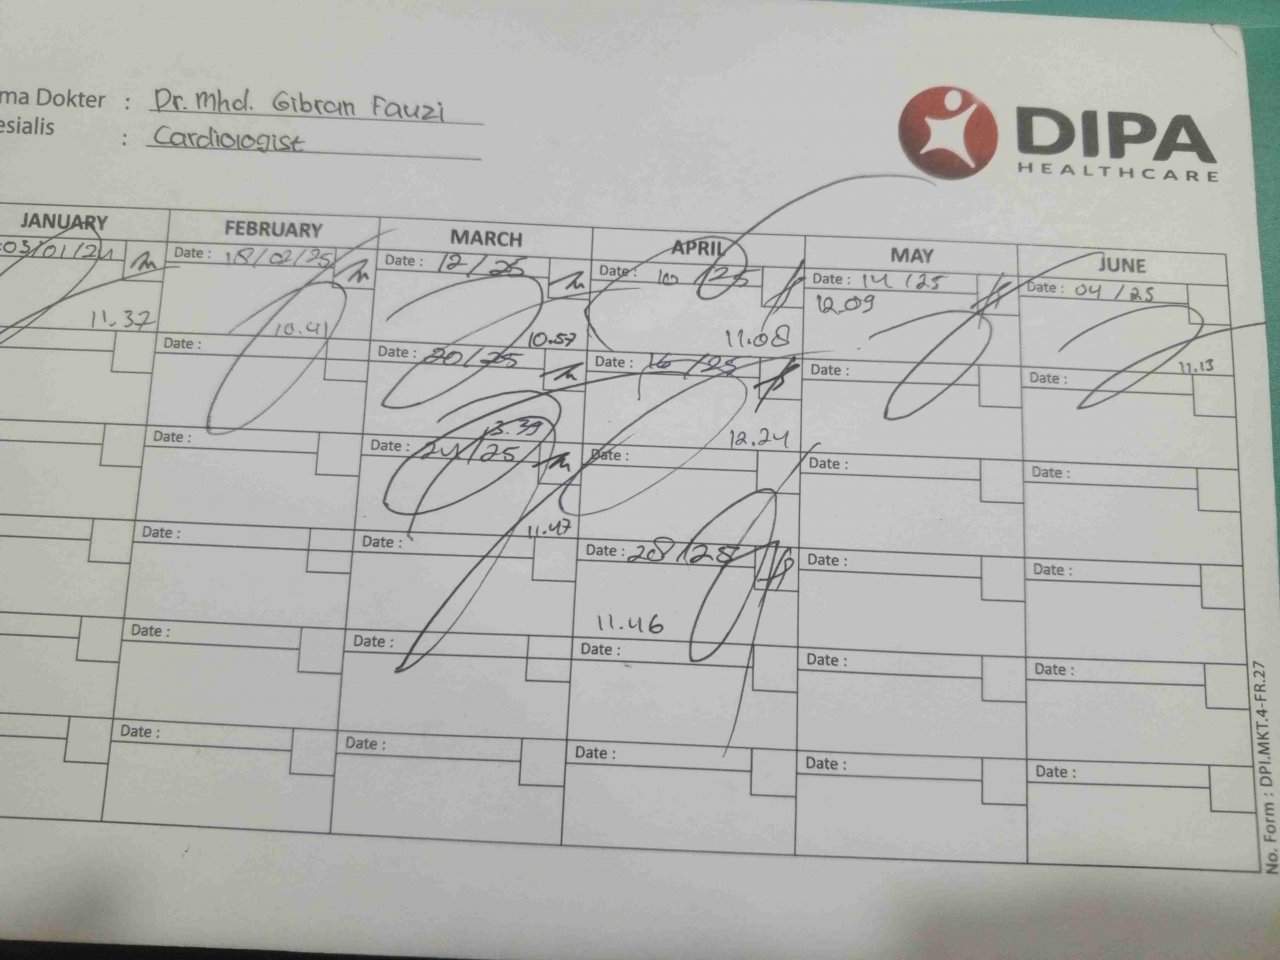 ma Dokter : Dr. Mhd. Gibran Fauzi
esialis : Cardiologist
DIPA
HEALTHCARE
JANUARY FEBRUARY MARCH APRIL MAY JUNE
03/01/24 Date : 18/02/25 Date : 12/25 Date : 10/25 Date : 14/25 Date : 04/25
11.37 10.41 10.57 11.08 12.09 11.13
Date : Date : 20/25 Date : 16/25 Date : Date :
13.39 12.24
Date : Date : 24/25 Date : Date : Date :
11.47
Date : Date : Date : 28/25 Date : Date :
11.46
Date : Date : Date : Date : Date :
Date : Date : Date : Date : Date :
No. Form : DPI.MKT.4-FR.27